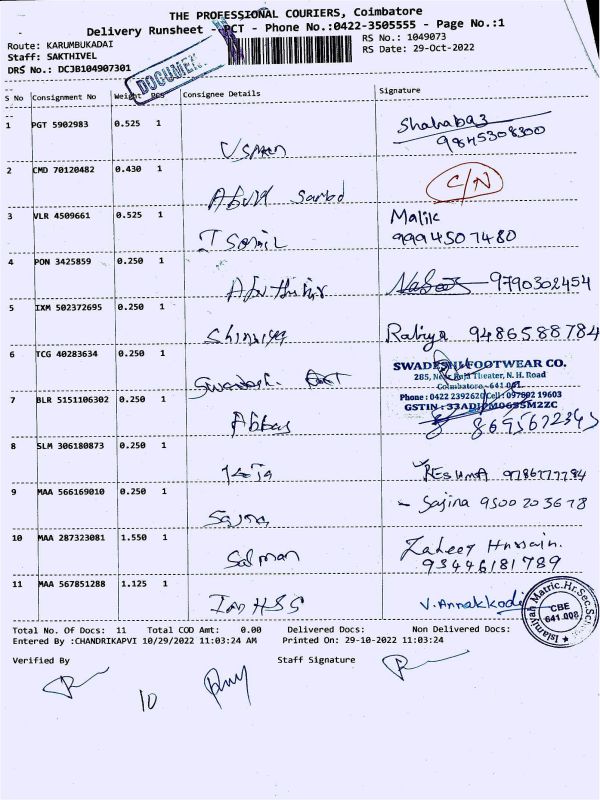 THE PROFESSIONAL COURIERS, Coimbatore
Delivery Runsheet - PCT - Phone No.:0422-3505555 - Page No.:1
Route: KARUMBUKADAI
RS No.: 1049073
Staff: SAKTHIVEL
RS Date: 29-Oct-2022
DRS No.: DCJB104907301
DOCUMEN
S No Consignment No Weight Pcs Consignee Details Signature
1 PGT 5902983 0.525 1 Shahabaz
Usman 9845308300
2 CMD 70120482 0.430 1 C/N
Abdul
3 VLR 4509661 0.525 1 Malik
Ismail 9994507480
4 PON 3425859 0.250 1
9790302454
5 IXM 502372695 0.250 1
Rabiya 9486588784
6 TCG 40283634 0.250 1 SWADESHI FOOTWEAR CO.
285, Near Raja Theater, N. H. Road
Coimbatore - 641 001.
7 BLR 5151106302 0.250 1 Phone : 0422 2392620 Cell : 097892 19603
GSTIN :
Abbas 8695672345
8 SLM 306180873 0.250 1
RESHMA 9786777784
9 MAA 566169010 0.250 1 - Sajina 9500203678
Sajina
10 MAA 287323081 1.550 1 Zaheer Hussain.
Salman 93446181789
11 MAA 567851288 1.125 1
V. Annakkodi
Islamiyah Matric.Hr.Sec.Sch
CBE
641 008
Total No. Of Docs: 11 Total COD Amt: 0.00 Delivered Docs: Non Delivered Docs:
Entered By :CHANDRIKAPVI 10/29/2022 11:03:24 AM Printed On: 29-10-2022 11:03:24
Verified By Staff Signature
10